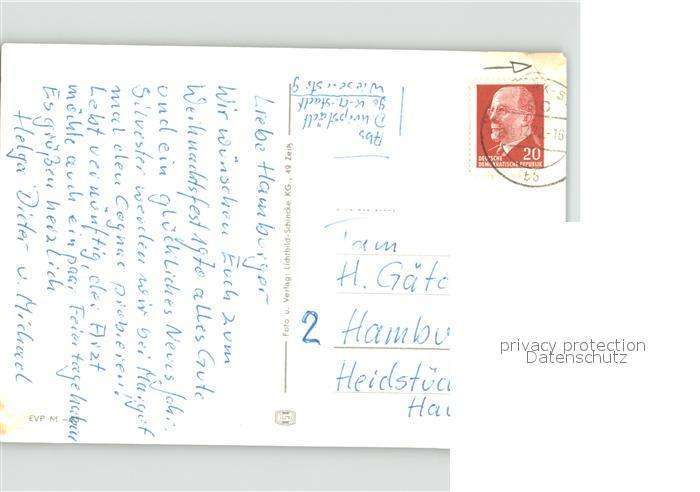 Liebe Hamburger
Wir wünschen Euch zum
Weihnachtsfest 1970 alles Gute
und ein glückliches Neues Jahr.
Silvester werden wir bei Margot
mal den Cognac probieren!
Lebt vernünftig, der Arzt
möchte auch ein paar Feiertage haben
Es grüßen herzlich
Helga Dieter u. Michael
Foto u. Verlag: Lichtbild-Schincke KG., 49 Zeitz
EVP M
Abs
Wiesenstr. 9
DEUTSCHE
DEMOKRATISCHE REPUBLIK
20
Fam
H. Gätc
2 Hambu
Heidstüc
Hau
privacy protection
Datenschutz